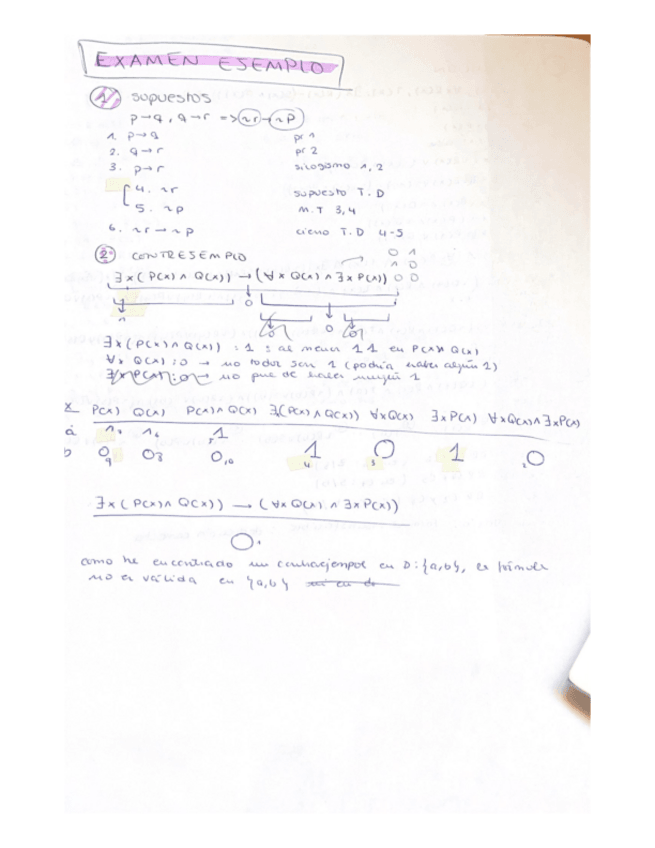 EXAMEN EJEMPLO
1 supuestos
p→q, q→r => ~r→~p
1. p→q pr 1
2. q→r pr 2
3. p→r silogismo 1, 2
4. ~r supuesto T.D
5. ~p M.T 3,4
6. ~r→~p cierro T.D 4-5
2 CONTRAEJEMPLO
0 1
1 0
∃x(P(x)∧Q(x))→(∀xQ(x)∧∃xP(x)) 0 0
1 0 0
∃x(P(x)∧Q(x)):1: al menos 1 1 en P(x)∧Q(x)
∀x Q(x):0 → no todos son 1 (podría haber algún 1)
→ no puede haber ningún 1
x P(x) Q(x) P(x)∧Q(x) ∃(P(x)∧Q(x)) ∀xQ(x) ∃xP(x) ∀xQ(x)∧∃xP(x)
a 1 1 1
b 0 9 0 8 0 10 1 4 0 3 1 0 2
∃x(P(x)∧Q(x))→(∀xQ(x)∧∃xP(x))
0 1
como he encontrado un contraejemplo en D:{a,b}, es fórmula
no es válida en {a,b}